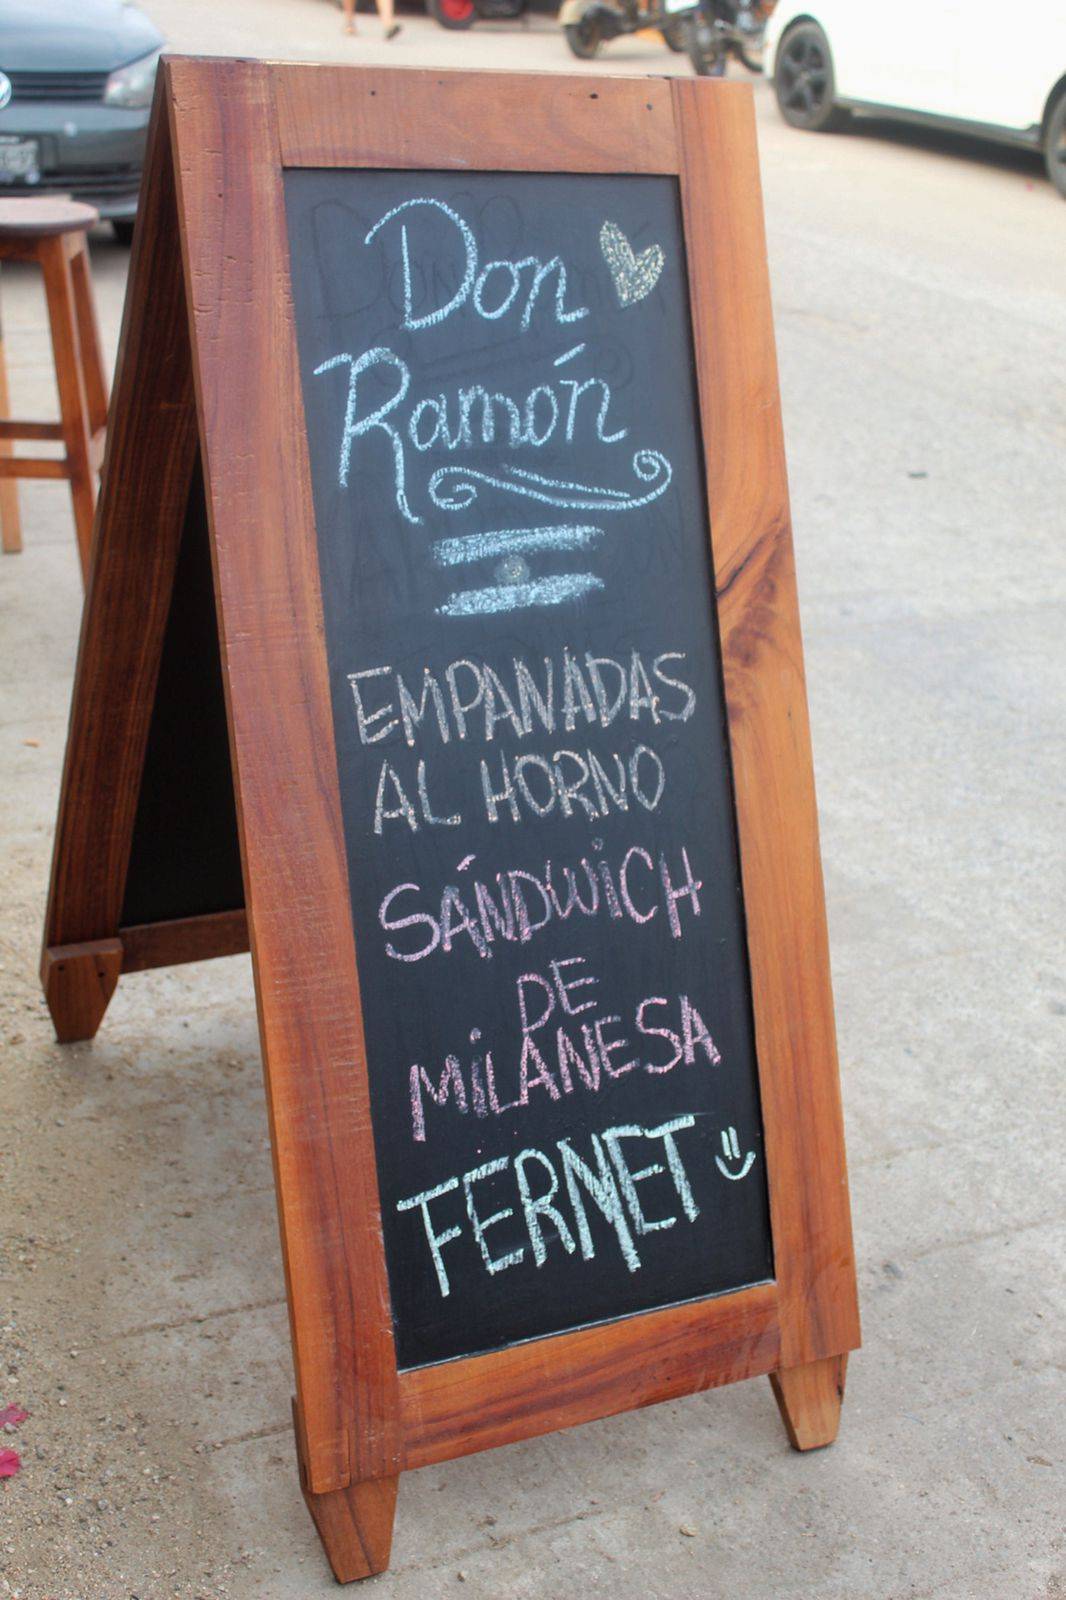 Don
Ramón
EMPANADAS
AL HORNO
SÁNDWiCH
DE
MiLANESA
FERNET